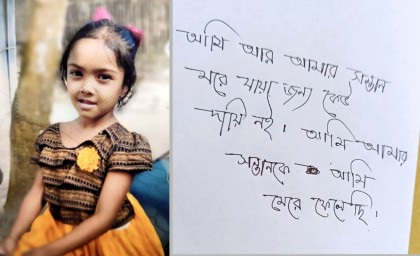 আমি আর আমার সন্তান
মরে যাবা জন্য কেউ
দায়ি নই। আমি আমার
সন্তানকে আমি
মেরে ফেলেছি।